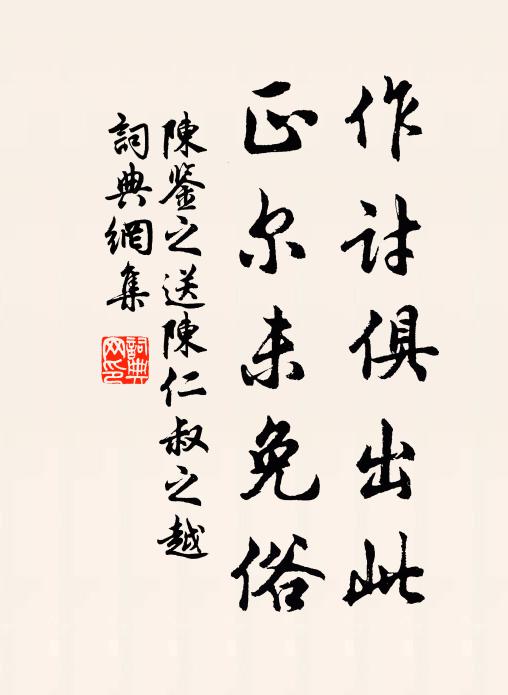 作计俱出此
正尔未免俗
陳鉴之送陳仁叔之越
詞典網集
詞典網印